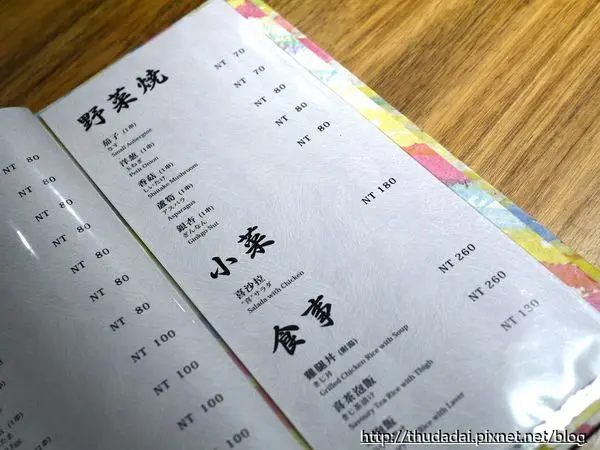 NT 80
NT 80
NT 80
NT 80
NT 80
NT 80
NT 100
NT 100
NT 100
野菜燒
茄子 (1串) NT 70
なす
Small Aubergine
洋葱 (1串) NT 70
たまねぎ
Petit Onion
香菇 (1串) NT 80
しいたけ
Shiitake Mushroom
蘆筍 (1串) NT 80
アスパラ
Asparagus
銀杏 (1串) NT 80
ぎんなん
Ginkgo Nut
小菜
喜沙拉 NT 180
"喜"サラダ
Salada with Chicken
食事
雞腿丼 (附湯) NT 260
きじ丼
Grilled Chicken Rice with Soup
喜茶泡飯 NT 260
きじ茶漬け
Savoury Tea Rice with Thigh
飯 NT 130
Rice with Laver
http://thudadai.pixnet.net/blog